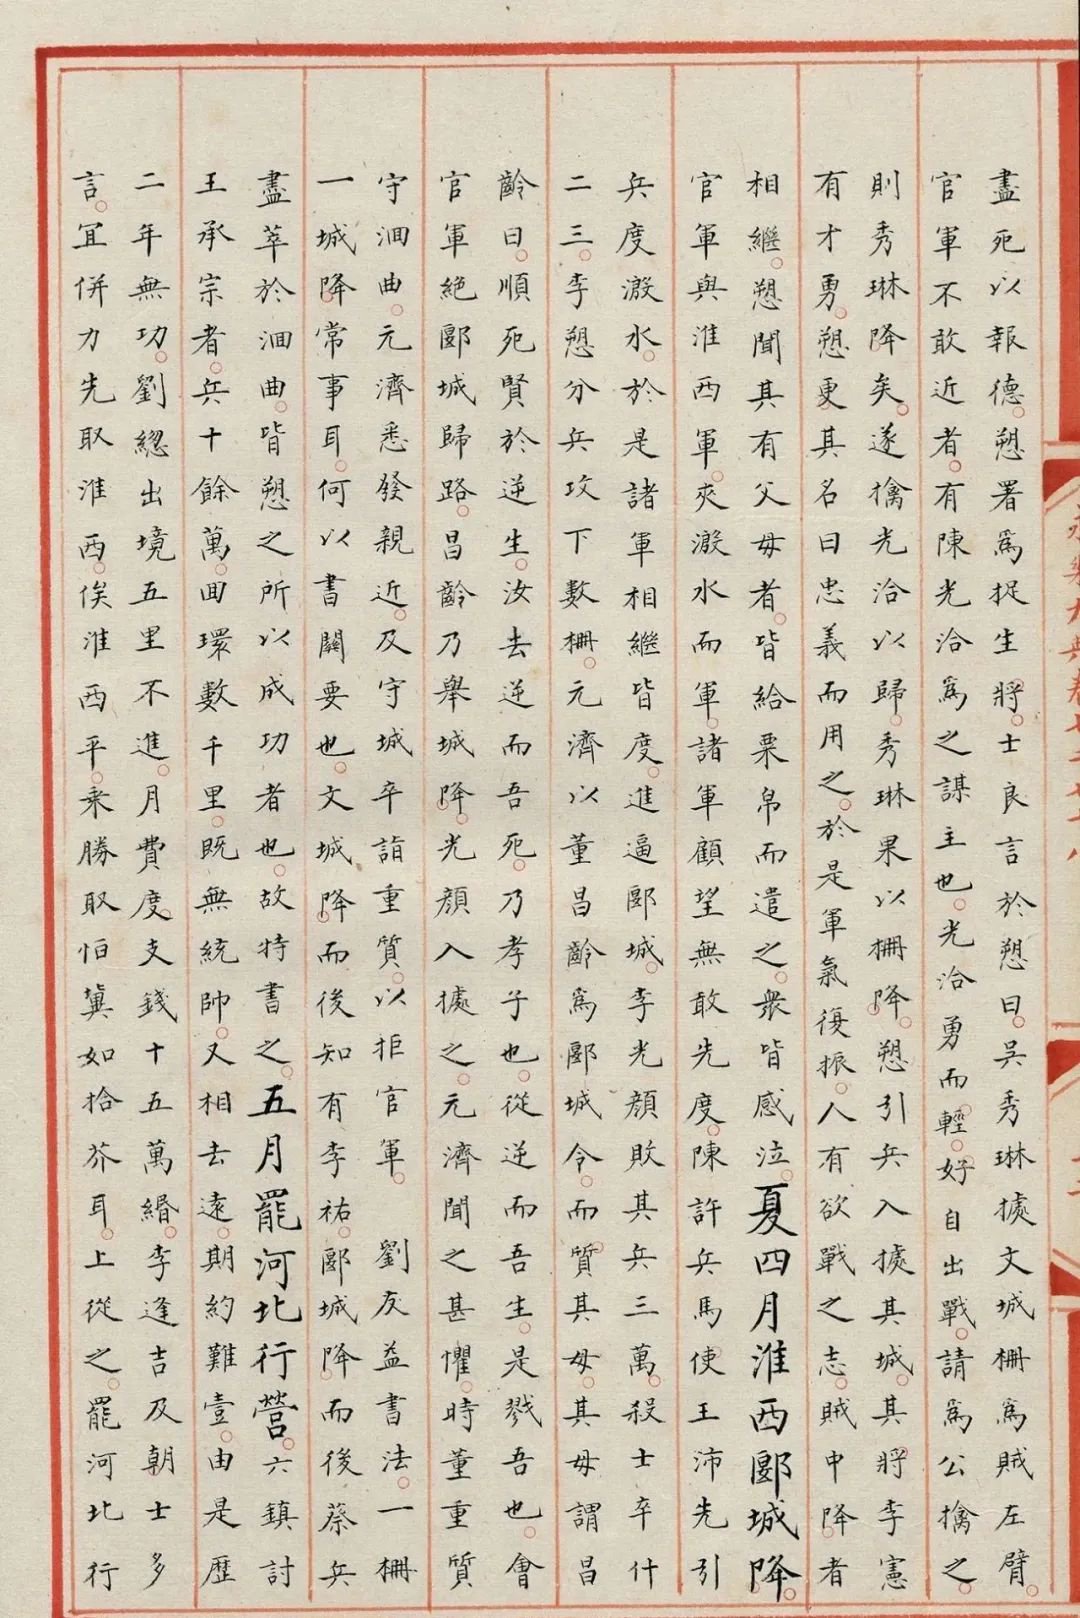 盡死以報德愬署爲捉生將士良言於愬曰吳秀琳據文城柵爲賊左臂
官軍不敢近者有陳光洽爲之謀主也光洽勇而輕好自出戰請爲公擒之
則秀琳降矣遂擒光洽以歸秀琳果以柵降愬引兵入據其城其將李憲
有才勇愬更其名曰忠義而用之於是軍氣復振人有欲戰之志賊中降者
相繼愬聞其有父母者皆給粟帛而遣之衆皆感泣夏四月淮西郾城降
官軍與淮西軍夾溵水而軍諸軍顧望無敢先度陳許兵馬使王沛先引
兵度溵水於是諸軍相繼皆度進逼郾城李光顏敗其兵三萬殺士卒什
二三李愬分兵攻下數柵元濟以董昌齡爲郾城令而質其母其母謂昌
齡曰順死賢於逆生汝去逆而吾死乃孝子也從逆而吾生是戮吾也會
官軍絕郾城歸路昌齡乃舉城降光顏入據之元濟聞之甚懼時董重質
守洄曲元濟悉發親近及守城卒詣重質以拒官軍 劉友益書法一柵
一城降常事耳何以書關要也文城降而後知有李祐郾城降而後蔡兵
盡萃於洄曲皆愬之所以成功者也故特書之五月罷河北行營六鎮討
王承宗者兵十餘萬回環數千里既無統帥又相去遠期約難壹由是歷
二年無功劉緫出境五里不進月費度支錢十五萬緡李逢吉及朝士多
言宜併力先取淮西俟淮西平乘勝取恒冀如拾芥耳上從之罷河北行
永樂大典卷七千